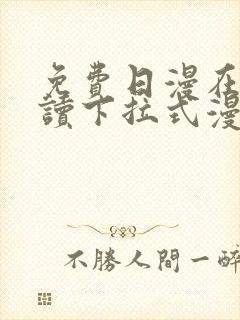 免費日漫在
讀下拉式漫
不勝人間一醉